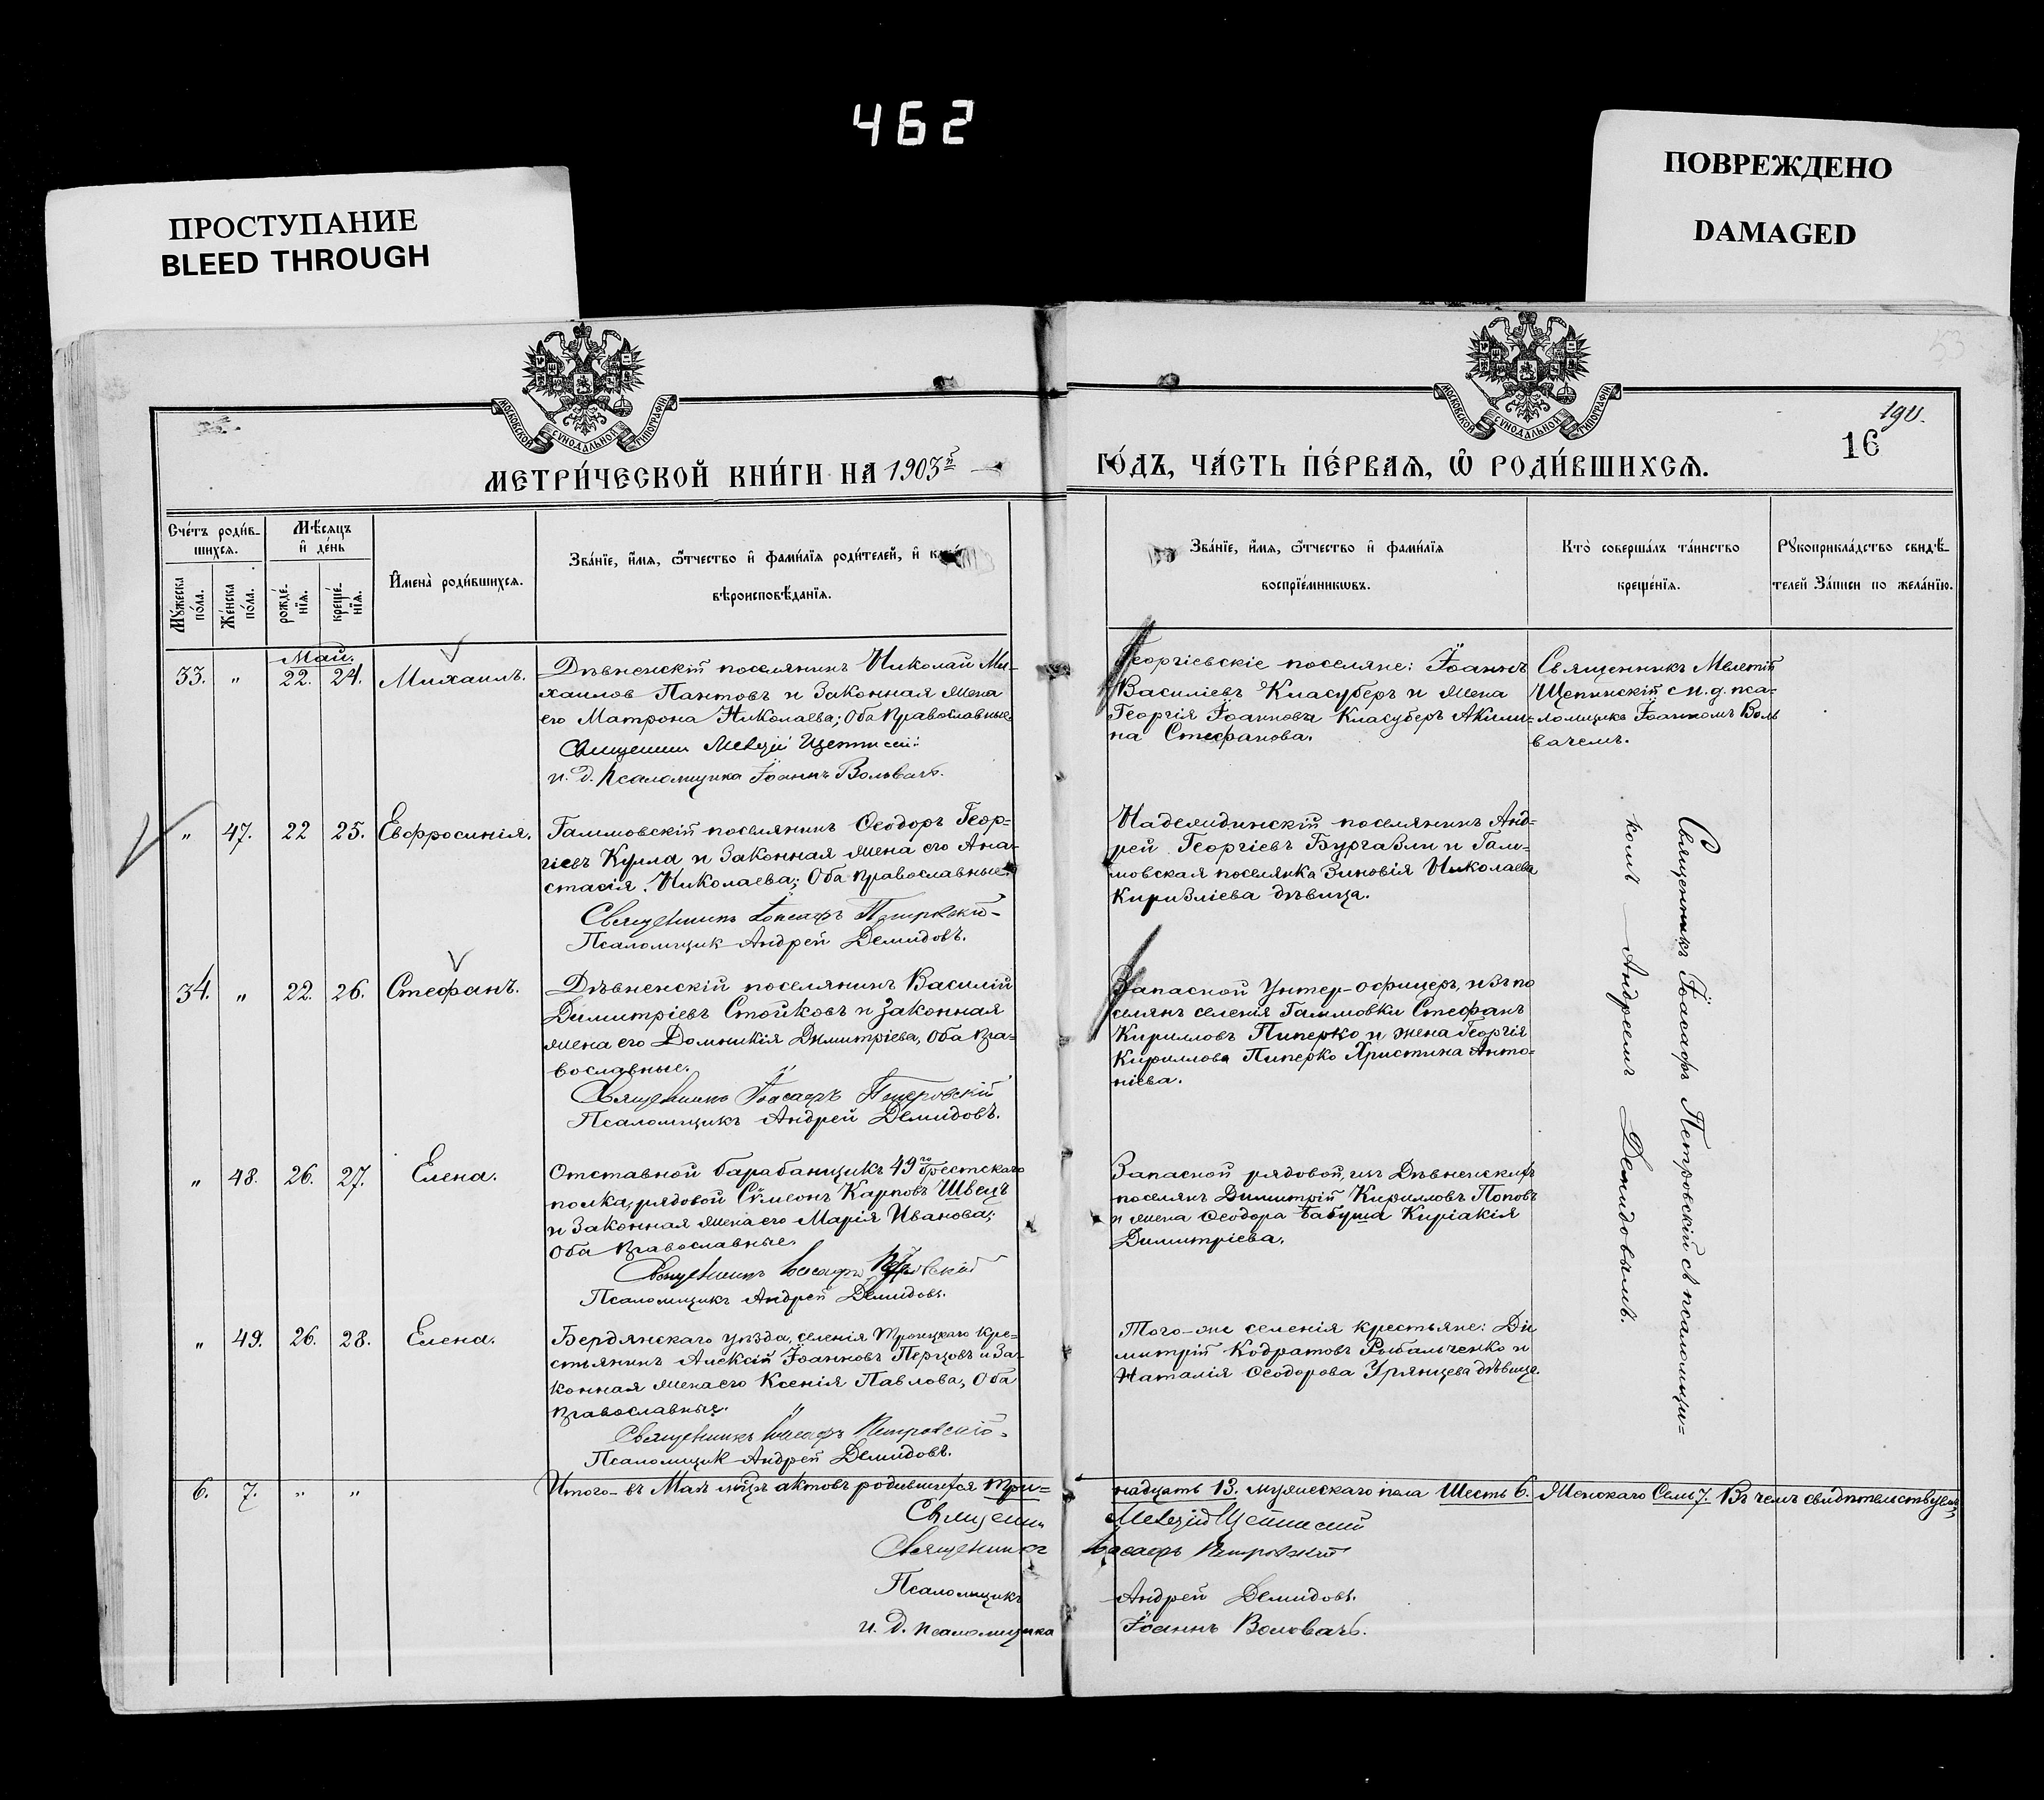 462
ПРОСТУПАНИЕ
BLEED THROUGH
ПОВРЕЖДЕНО
DAMAGED
МОСКОВСКОЙ СѴНОДАЛЬНОЙ ТИПОГРАФІИ
МОСКОВСКОЙ СѴНОДАЛЬНОЙ ТИПОГРАФІИ
16
МЕТРИ́ЧЕСКОЙ КНИ́ГИ НА 1903й
ГО́ДЪ, ЧА́СТЬ ПЕ́РВАѦ, Ѿ РОДИ́ВШИХСѦ.
Сче́тъ роди́в-
шихсѧ.
Мꙋ́жеска по́ла.
Же́нска по́ла.
Мѣ́сѧцъ
и҆ де́нь
рожде́-
нїѧ.
креще́-
нїѧ.
И҆мена̀ роди́вшихсѧ.
Зва́нїе, и҆́мѧ, ѻ҆́тчество и҆ фами́лїѧ роди́телей, и҆
вѣроисповѣ́данїѧ.
Зва́нїе, и҆́мѧ, ѻ҆́тчество и҆ фами́лїѧ
воспрїе́мникѡвъ.
Кто̀ соверша́лъ та́инство
креще́нїѧ.
Рꙋкоприкла́дство свидѣ́-
телей За́писи по жела́нїю.
Май.
33. " 22. 24. Михаилъ.
Дѣвненскій поселянинъ Николай Ми-
хаилов Пантовъ и законная жена
его Матрона Николаева; оба православные
Священник Мелетій Щепинскій
и. д. псаломщика Іоаннъ Воловачъ.
Георгіевскіе поселяне: Іоаннъ
Василіевъ Класуберъ и жена
Георгія Іоаннова Класуберъ Акили-
на Стефанова.
Священникъ Мелетій
Щепинскій с и. д. пса-
ломщика Іоанномъ Воло
вачемъ.
" 47. 22 25. Евфросинія.
Гаммовскій поселянинъ Ѳеодоръ Геор-
гіевъ Кулла и законная жена его Ана-
стасія Николаева; оба православные.
Священникъ Іоасафъ Петровскій
Псаломщик Андрей Демидовъ.
Надеждинскій поселянинъ Анд-
рей Георгіевъ Бургазли и Гам-
мовская поселянка Зиновія Николаева
Киризліева дѣвица.
Священникъ Іоасафъ Петровскій съ псаломщи-
комъ Андреемъ Демидовымъ.
34. " 22. 26. Стефанъ.
Дѣвненскій поселянинъ Василій
Димитріевъ Стойковъ и законная
жена его Домникія Димитріева, оба пра-
вославные.
Священникъ Іоасафъ Петровскій
Псаломщикъ Андрей Демидовъ.
Запасной Унтер-офицеръ, изъ по
селянъ селенія Гаммовки Стефанъ
Кирилловъ Пиперко и жена Георгія
Кириллова Пиперко Христина Анто-
ніева.
" 48. 26. 27. Елена.
Отставной барабанщикъ 49го Брестскаго
полка, рядовой Сѵмеонъ Карповъ Швецъ
и законная жена его Марія Иванова;
оба православные.
Священникъ Іоасафъ Петровскій
Псаломщикъ Андрей Демидовъ.
Запасной рядовой, изъ Дѣвненскихъ
поселянъ Димитрій Кирилловъ Поповъ
и жена Ѳеодора Бабуша Киріакія
Димитріева.
" 49. 26. 28. Елена.
Бердянскаго уѣзда, селенія Троицкаго кре-
стьянинъ Алексій Іоанновъ Перцовъ и за-
конная жена его Ксенія Павлова, оба
православные.
Священникъ Іоасафъ Петровскій
Псаломщик Андрей Демидовъ.
Того-же селенія крестьяне: Ди
митрій Кодратовъ Рыбальченко и
Наталія Ѳеодорова Урянцева дѣвица.
6. 7. " " Итого въ Маѣ мѣцѣ актовъ родившихся три-
надцать 13. мужескаго пола Шесть 6. Женскаго Семь 7. Въ чемъ свидѣтельствуемъ
Священник Мелетій Щепинскій
Священникъ Іоасафъ Петровскій
Псаломщикъ Андрей Демидовъ.
и. д. псаломщика Іоаннъ Воловачъ.